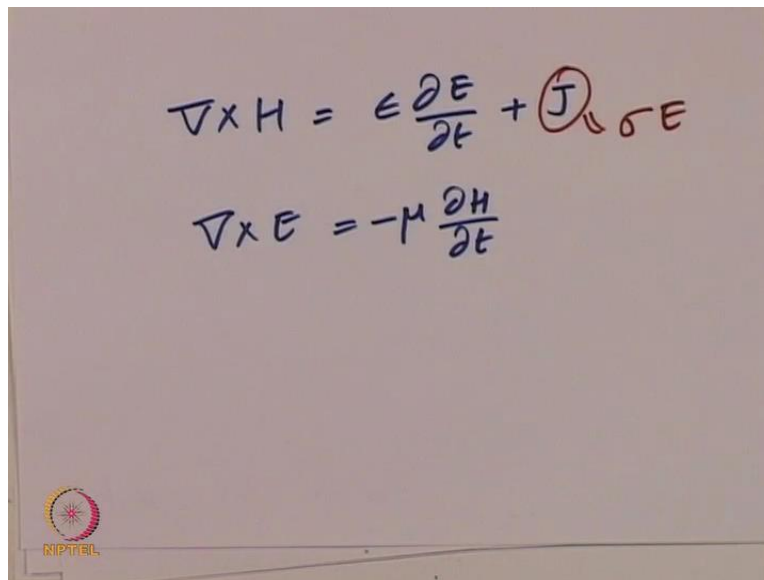 ∇×H = ε ∂E/∂t + J ⇘ σE
∇×E = -μ ∂H/∂t
NPTEL